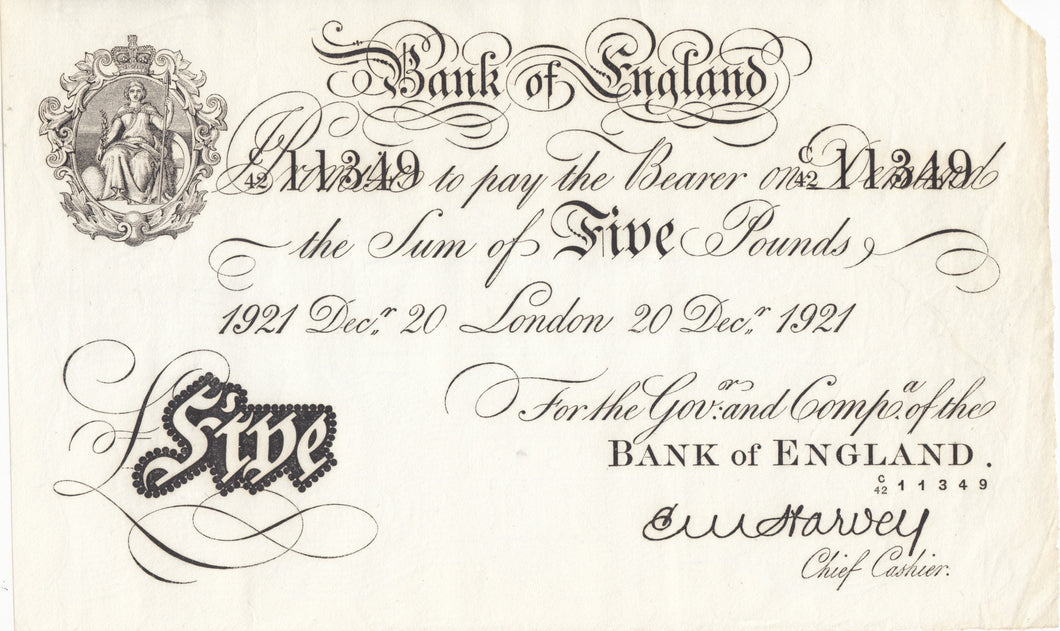 Bank of England
I Promise to pay the Bearer on Demand
C/42 11349 C/42 11349
the Sum of Five Pounds
1921 Decr. 20 London 20 Decr. 1921
Five
For the Govr. and Compa. of the
BANK of ENGLAND.
C/42 11349
E M Harvey
Chief Cashier.